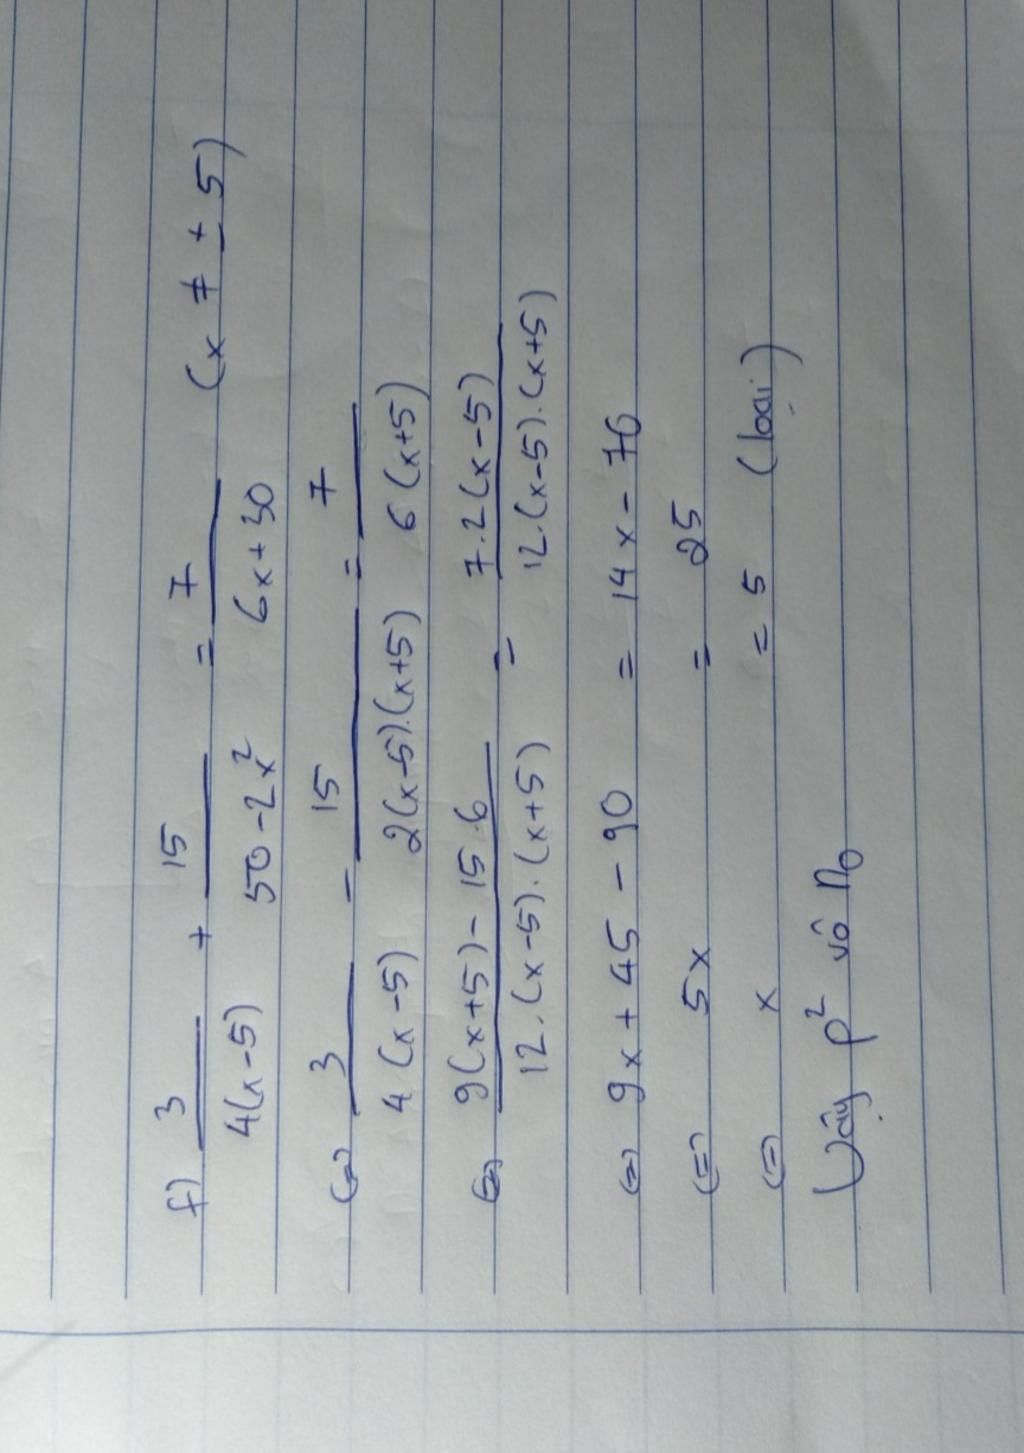 f) 3/4(x-5) + 15/50-2x² = 7/6x+30 (x ≠ ± 5)
(=) 3/4(x-5) - 15/2(x-5).(x+5) = 7/6(x+5)
(=) 9(x+5)-15.6/12.(x-5).(x+5) = 7.2(x-5)/12.(x-5).(x+5)
(=) 9x+45-90 = 14x-70
(=) 5x = 25
(=) x = 5 (loại)
Vậy p² vô n₀